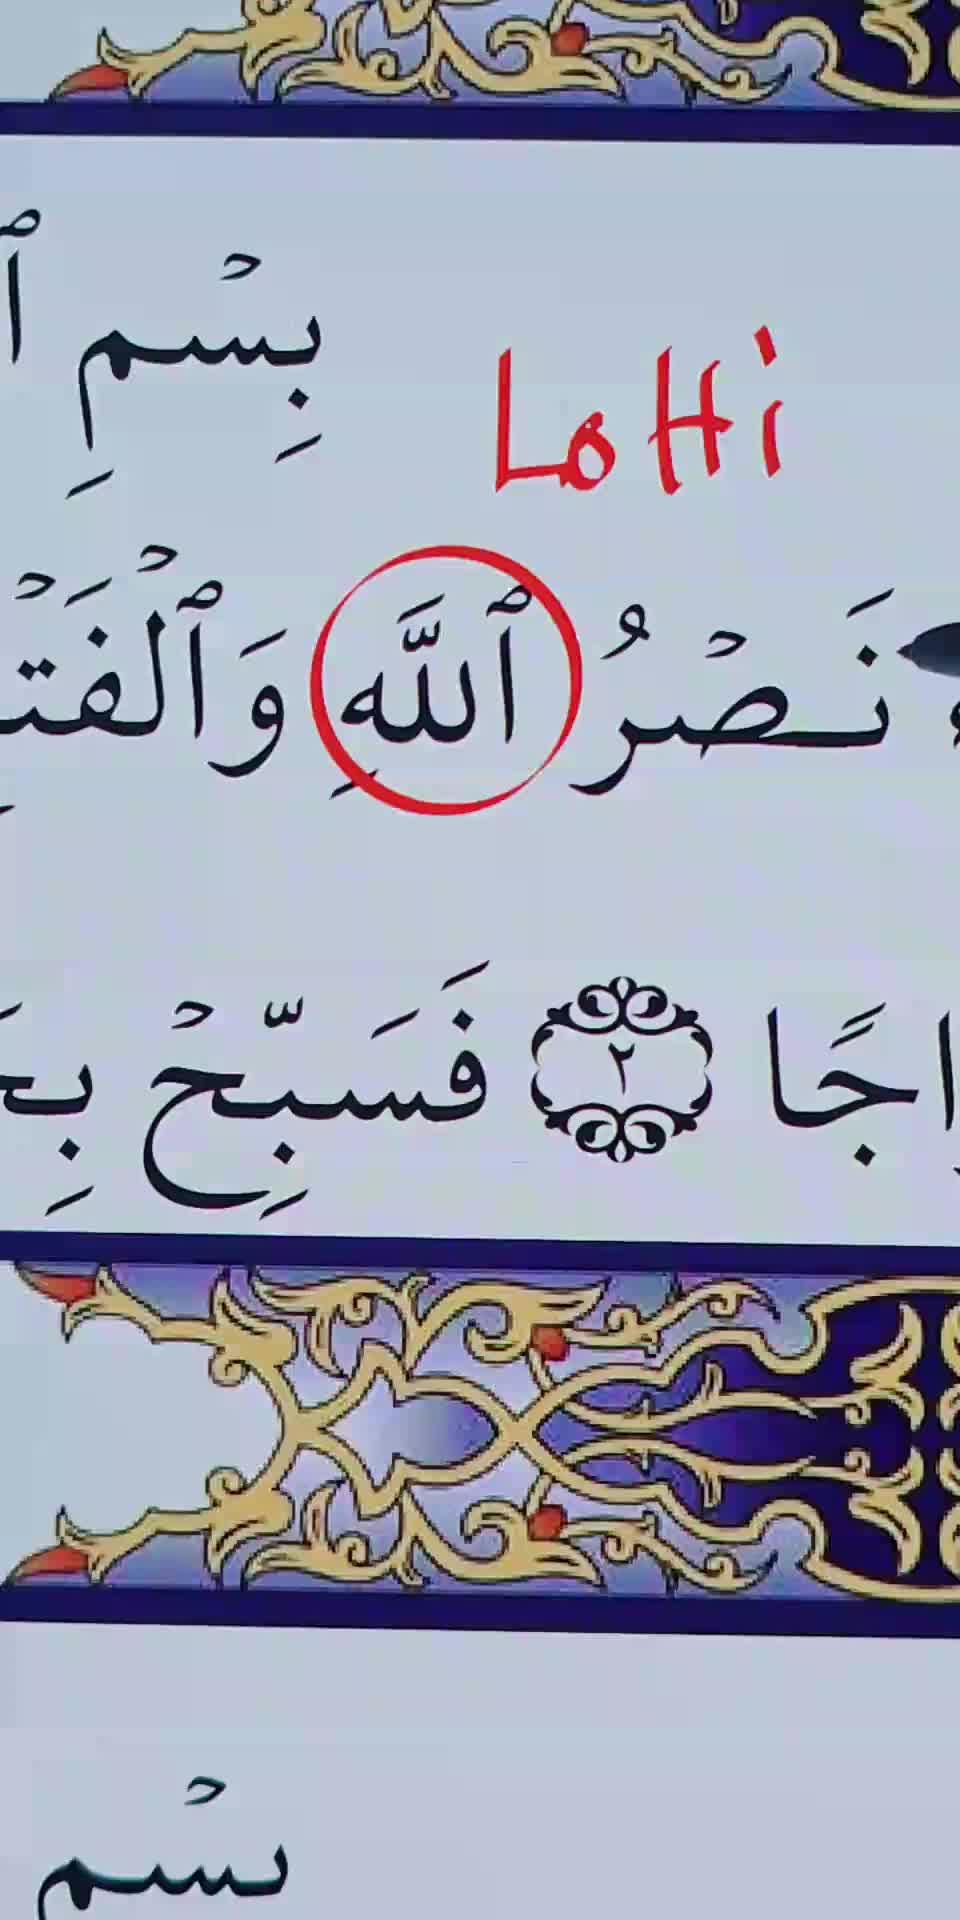 بِسْمِ
LoHi
نَصْرُ ٱللَّهِ وَٱلْفَتْ
اجًا ٢ فَسَبِّحْ بِحَ
بسْم